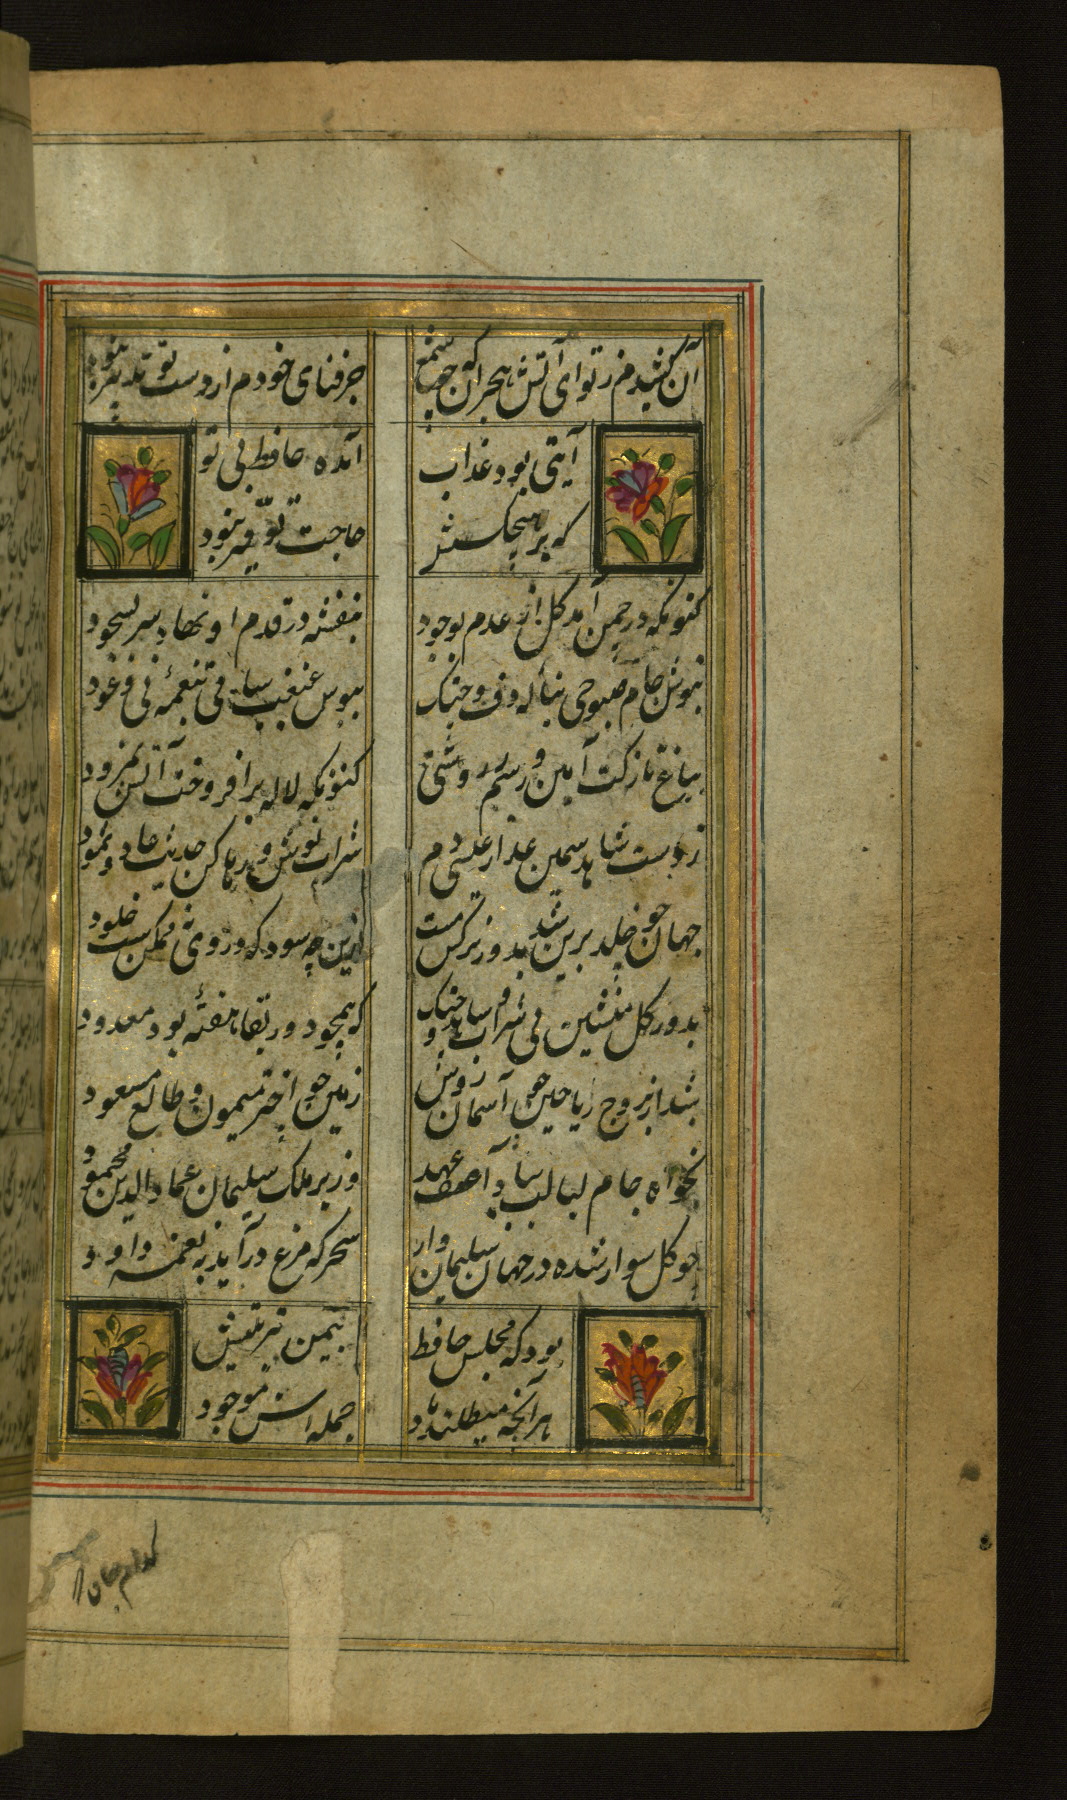 آن کشیدم ز تو ای آتش هجران که چو شمع
جز فنای خودم از دست تو تدبیر نبود
آیتی بود عذاب
که بر هیچکسش
آمده حافظ بی تو
حاجت توفیر نبود
کنونکه در چمن آمد کل از عدم بوجود
بنفشه در قدم او نهاد سر بسجود
بنوش جام صبوحی بناله دف و چنک
ببوس غبغب ساقی بنغمه نی و عود
بباغ تازه کن آیین و رسم زردشتی
کنونکه لاله برافروخت آتش نمرود
ز دست شاهد سیمین عذار عیسی دم
شراب نوش و رها کن حدیث عاد و ثمود
جهان چو خلد برین شد بدور نرکس مست
ازین چه سود که در وی نه ممکن ست خلود
بدور کل منشین بی شراب و شاهد و چنک
که همچو دور بقا هفتهٔ بود معدود
شد از بروج ریاحین چو آسمان روشن
زمین چو اختر میمون و طالع مسعود
بخواه جام لبالب بیاد آصف عهد
وزیر ملک سلیمان عماد الدین محمود
چو کل سوار شده در جهان سلیمان وار
سحر که مرغ درآید به نغمه داود
بود که مجلس حافظ
هر آنچه میطلبد باد
بیمن تربیتش
جمله اش موجود